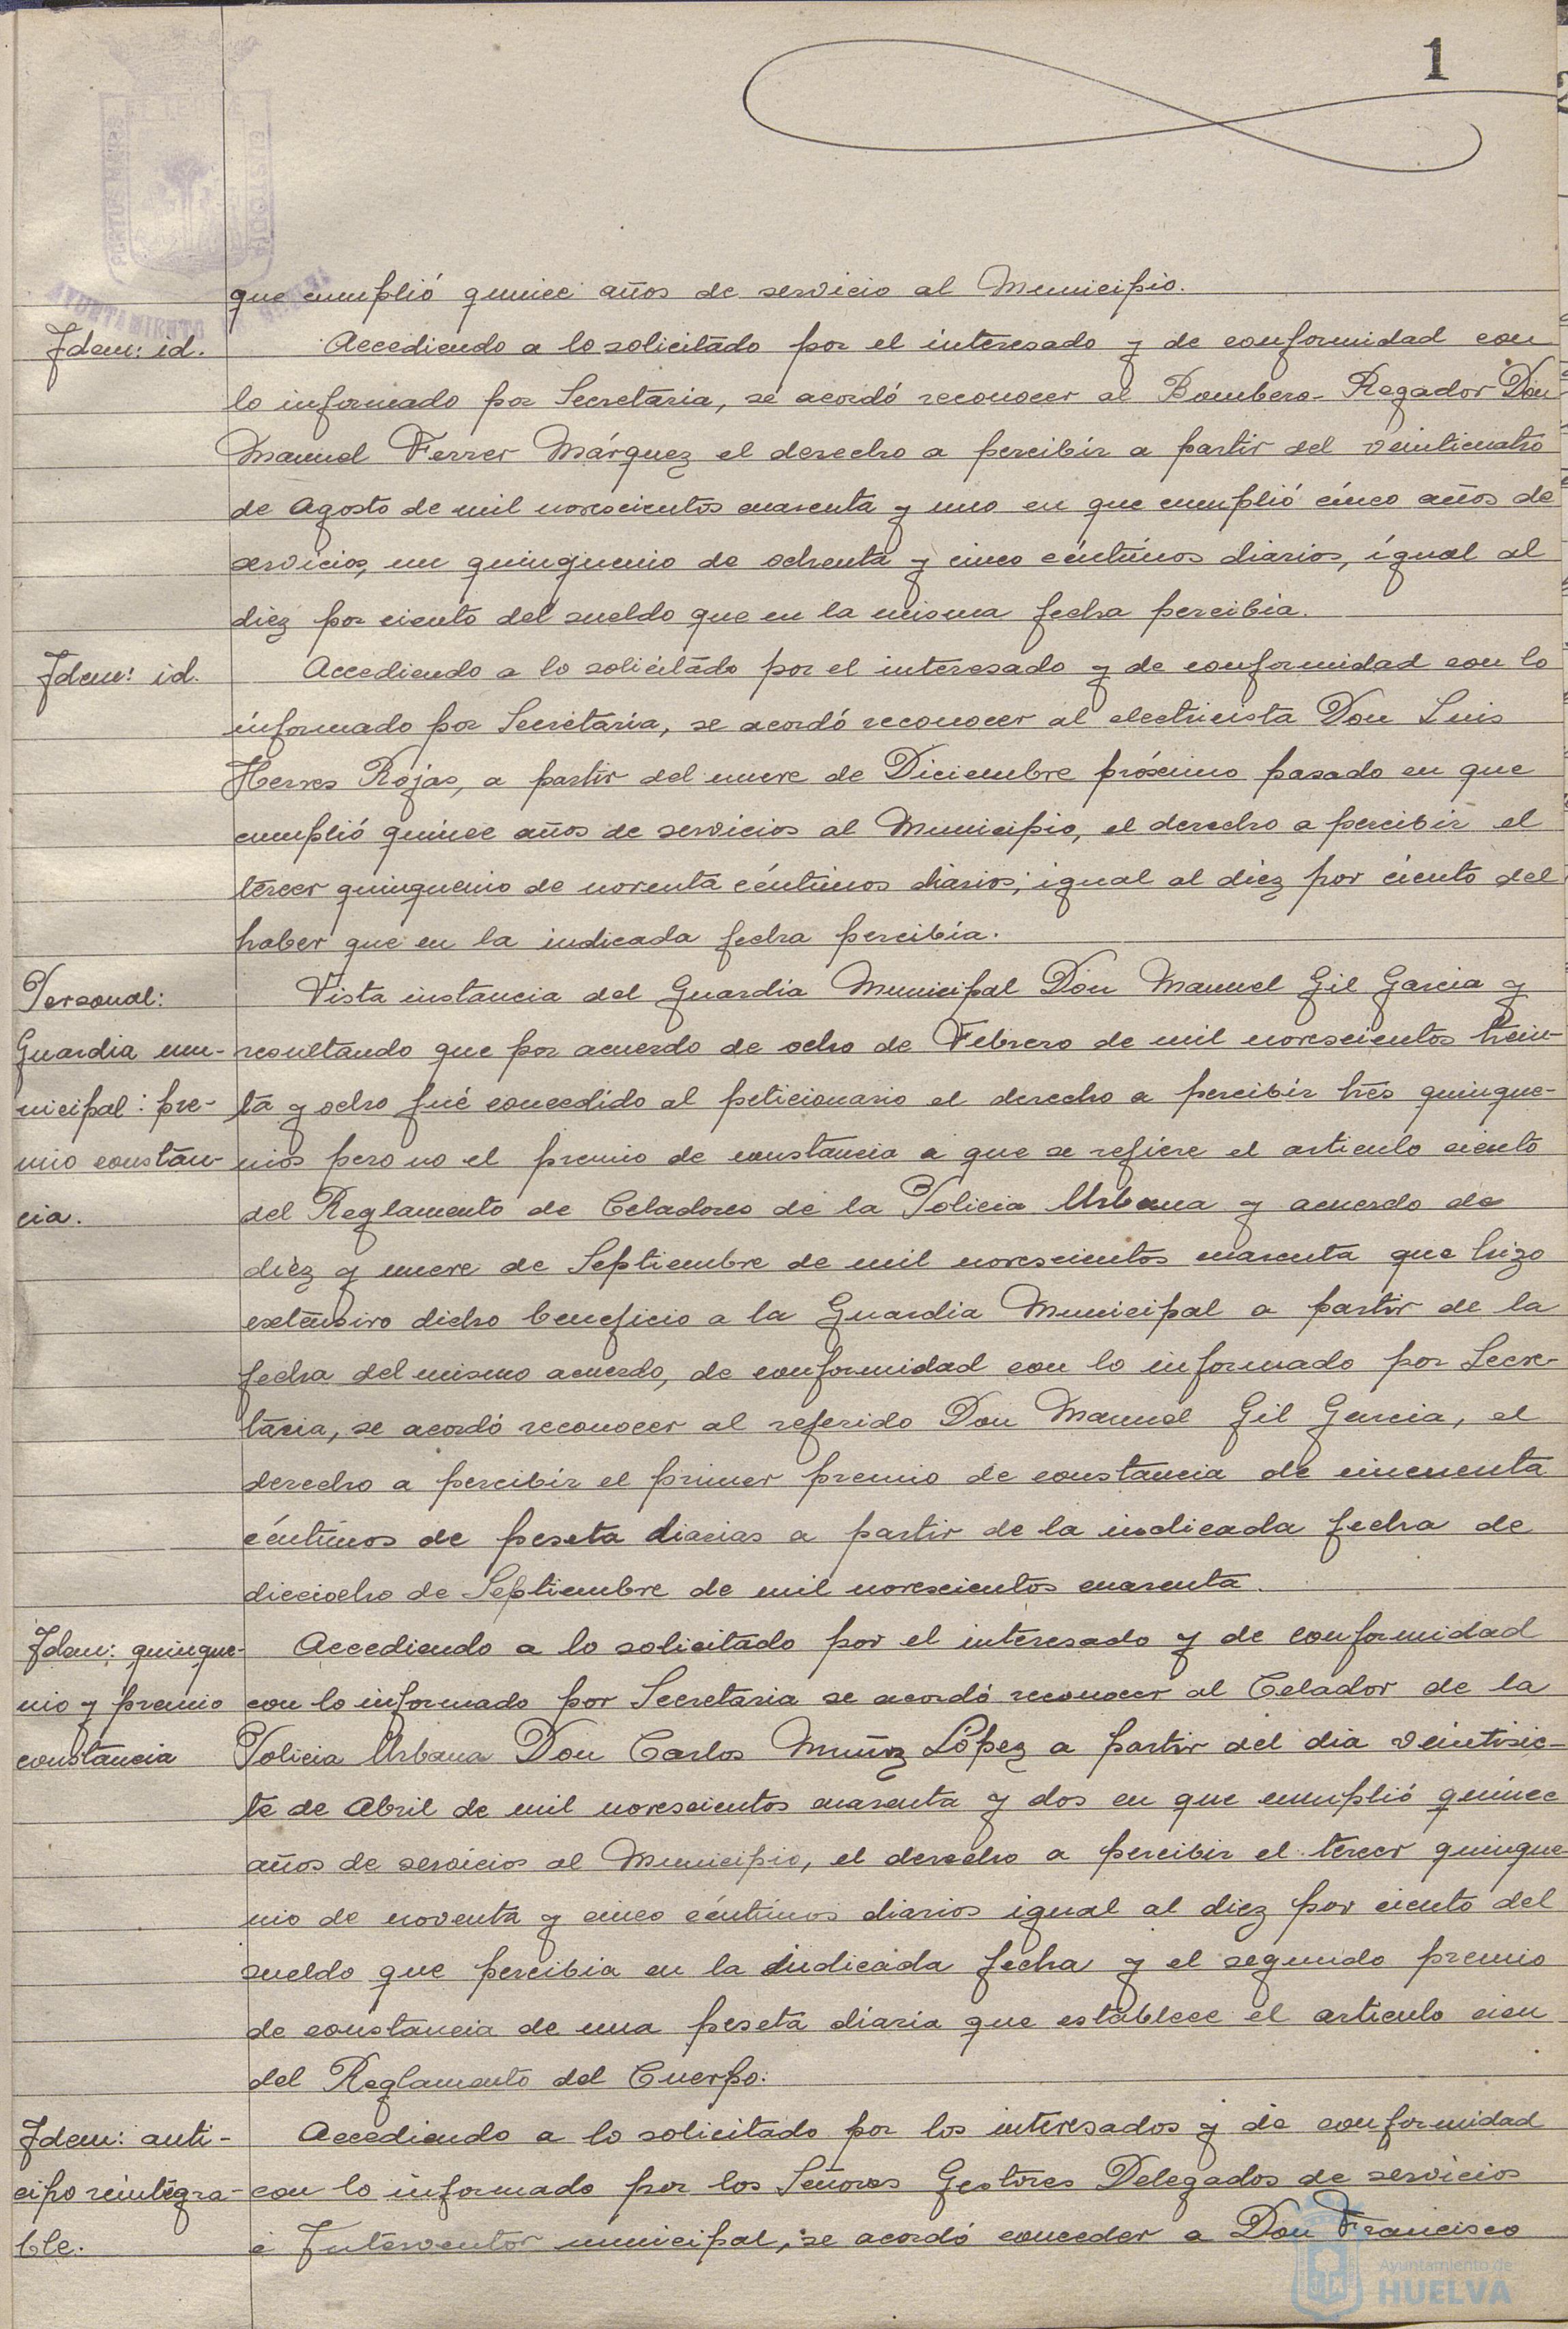 1
que cumplió quince años de servicio al Municipio.
Idem: id. Accediendo a lo solicitado por el interesado y de conformidad con
lo informado por Secretaria, se acordó reconocer al Bombero-Regador Don
Manuel Ferrer Márquez el derecho a percibir a partir del veinticuatro
de Agosto de mil novescientos cuarenta y uno en que cumplió cinco años de
servicios, un quinquenio de ochenta y cinco céntimos diarios, igual al
diez por ciento del sueldo que en la misma fecha percibia.
Idem: id. Accediendo a lo solicitado por el interesado y de conformidad con lo
informado por Secretaria, se acordó reconocer al electricista Don Luis
Herves Rojas, a partir del nueve de Diciembre próximo pasado en que
cumplió quince años de servicios al Municipio, el derecho a percibir el
tercer quinquenio de noventa céntimos diarios; igual al diez por ciento del
haber que en la indicada fecha percibia.
Personal: Vista instancia del Guardia Municipal Don Manuel Gil Garcia y
Guardia mu- resultando que por acuerdo de ocho de Febrero de mil novescientos trein-
nicipal: pre- ta y ocho fué concedido al peticionario el derecho a percibir trés quinque-
mio constan- nios pero no el premio de constancia a que se refiere el articulo ciento
cia. del Reglamento de Celadores de la Policia Urbana y acuerdo de
diéz y nueve de Septiembre de mil novescientos cuarenta que hizo
extensivo dicho beneficio a la Guardia Municipal a partir de la
fecha del mismo acuerdo, de conformidad con lo informado por Secre-
taria, se acordó reconocer al referido Don Manuel Gil Garcia, el
derecho a percibir el primer premio de constancia de cincuenta
céntimos de peseta diarias a partir de la indicada fecha de
dieciocho de Septiembre de mil novescientos cuarenta.
Idem: quinque- Accediendo a lo solicitado por el interesado y de conformidad
nio y premio con lo informado por Secretaria se acordó reconocer al Celador de la
constancia Policia Urbana Don Carlos Muñoz López a partir del dia veintisie-
te de Abril de mil novescientos cuarenta y dos en que cumplió quince
años de servicios al Municipio, el derecho a percibir el tercer quinque-
nio de noventa y cinco céntimos diarios igual al diez por ciento del
sueldo que percibia en la indicada fecha y el segundo premio
de constancia de una peseta diaria que establece el articulo cien
del Reglamento del Cuerpo.
Idem: anti- Accediendo a lo solicitado por los interesados y de conformidad
cipo reintegra- con lo informado por los Señores Gestores Delegados de servicios
ble. é Interventor municipal, se acordó conceder a Don Francisco
Ayuntamiento de
HUELVA